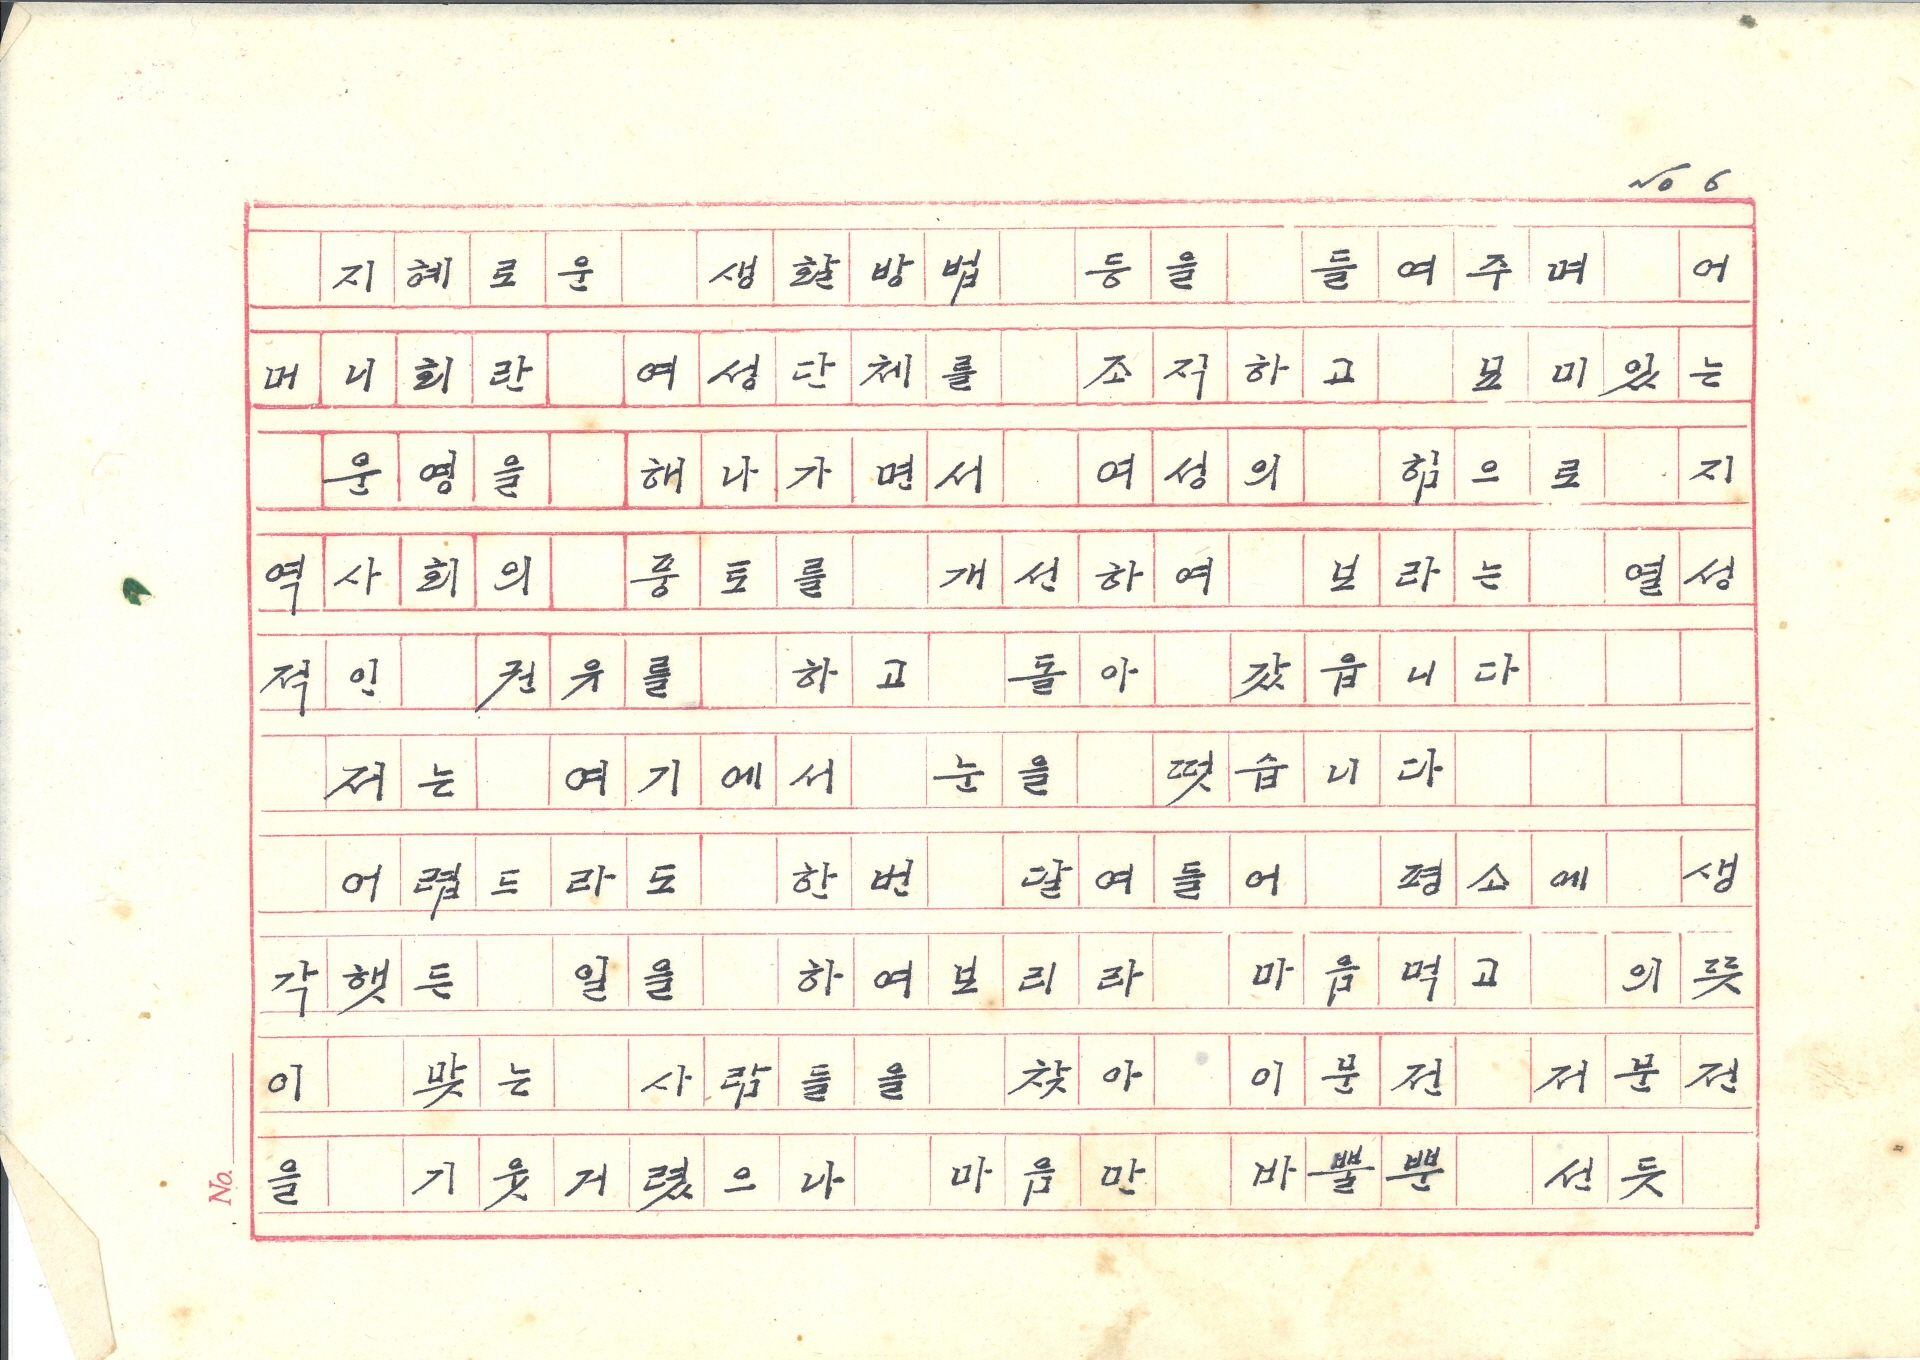 No 6
지혜로운 생활방법 등을 들여주며 어
머니회란 여성단체를 조직하고 뵤미있는
운영을 해나가면서 여성의 힘으로 지
역사회의 풍토를 개선하여 보라는 열성
적인 권유를 하고 돌아 갔읍니다
저는 여기에서 눈을 떳습니다
어렵드라도 한번 달여들어 평소에 생
각햇든 일을 하여보리라 마음먹고 의뜻
이 맞는 사람들을 찾아 이문전 저문전
을 기웃거렸으나 마음만 바뿔뿐 선듯
No.